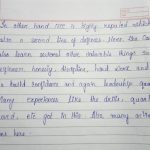 In other hand NCC is highly reputed
also a second line of defence. Here, the Ca
also learn several other valuable things su
, honesty, discipline, hard work and
build confidence and again leadership qua
Many experiences like the drills,
, etc got in this. Also many
here.